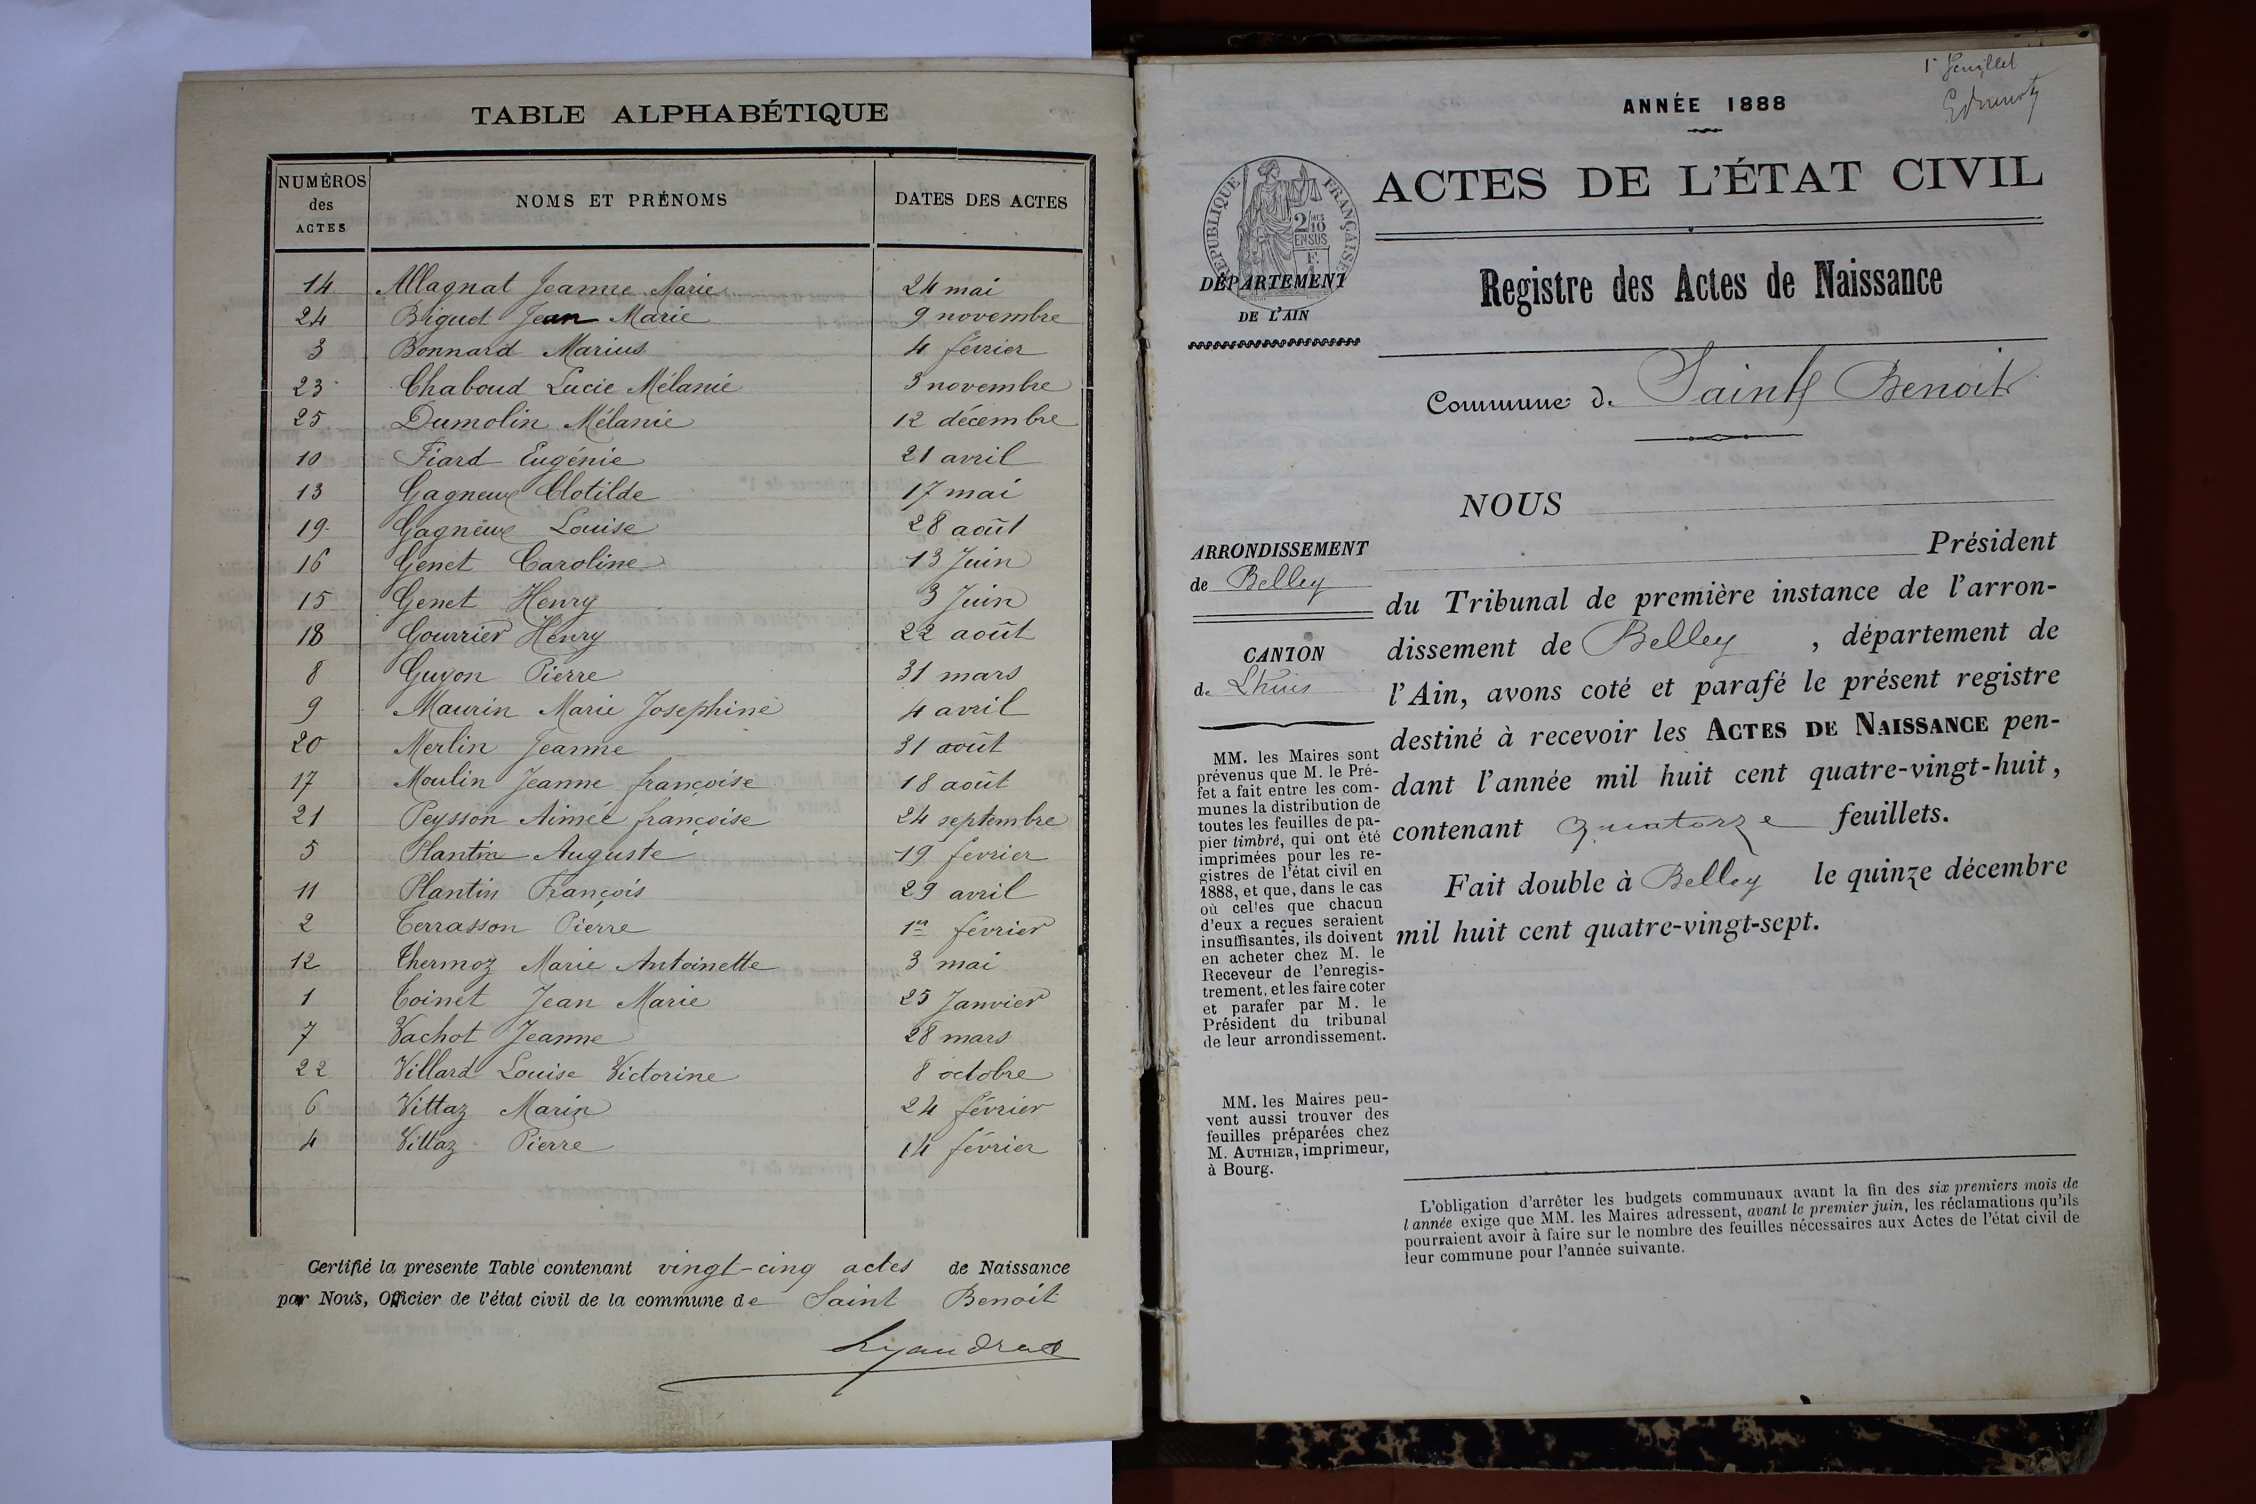 TABLE ALPHABÉTIQUE
NUMÉROS des ACTES NOMS ET PRÉNOMS DATES DES ACTES
14 Allagnat Jeanne Marie 24 mai
24 Biguet Jean Marie 9 novembre
3 Bonnard Marius 4 février
23 Chaboud Lucie Mélanie 3 novembre
25 Dumolin Mélanie 12 décembre
10 Fiard Eugénie 21 avril
13 Gagneux Clotilde 17 mai
19 Gagneux Louise 28 août
16 Genet Caroline 13 Juin
15 Genet Henry 3 Juin
18 Gourrier Henry 22 août
8 Guyon Pierre 31 mars
9 Maurin Marie Joséphine 4 avril
20 Merlin Jeanne 31 août
17 Moulin Jeanne françoise 18 août
21 Peysson Aimée françoise 24 septembre
5 Plantin Auguste 19 fevrier
11 Plantin François 29 avril
2 Terrasson Pierre 1er février
12 Thermoz Marie Antoinette 3 mai
1 Toinet Jean Marie 25 Janvier
7 Vachot Jeanne 28 mars
22 Villard Louise Victorine 8 octobre
6 Vittaz Marin 24 février
4 Vittaz Pierre 14 février
Certifié la présente Table contenant vingt-cinq actes de Naissance
par Nous, Officier de l'état civil de la commune de Saint Benoit
1r feuillet
ANNÉE 1888
ACTES DE L'ÉTAT CIVIL
RÉPUBLIQUE FRANÇAISE
2/10 EN SUS
DÉPARTEMENT
DE L'AIN
Registre des Actes de Naissance
Commune de Saint Benoit
NOUS
Président
ARRONDISSEMENT
de Belley
CANTON
de Lhuis
du Tribunal de première instance de l'arron-
dissement de Belley , département de
l'Ain, avons coté et parafé le présent registre
destiné à recevoir les ACTES DE NAISSANCE pen-
dant l'année mil huit cent quatre-vingt-huit,
contenant quatorze feuillets.
Fait double à Belley le quinze décembre
mil huit cent quatre-vingt-sept.
MM. les Maires sont
prévenus que M. le Pré-
fet a fait entre les com-
munes la distribution de
toutes les feuilles de pa-
pier timbré, qui ont été
imprimées pour les re-
gistres de l'état civil en
1888, et que, dans le cas
où celles que chacun
d'eux a reçues seraient
insuffisantes, ils doivent
en acheter chez M. le
Receveur de l'enregis-
trement, et les faire coter
et parafer par M. le
Président du tribunal
de leur arrondissement.
MM. les Maires peu-
vent aussi trouver des
feuilles préparées chez
M. AUTHIER, imprimeur,
à Bourg.
L'obligation d'arrêter les budgets communaux avant la fin des six premiers mois de
l'année exige que MM. les Maires adressent, avant le premier juin, les réclamations qu'ils
pourraient avoir à faire sur le nombre des feuilles nécessaires aux Actes de l'état civil de
leur commune pour l'année suivante.